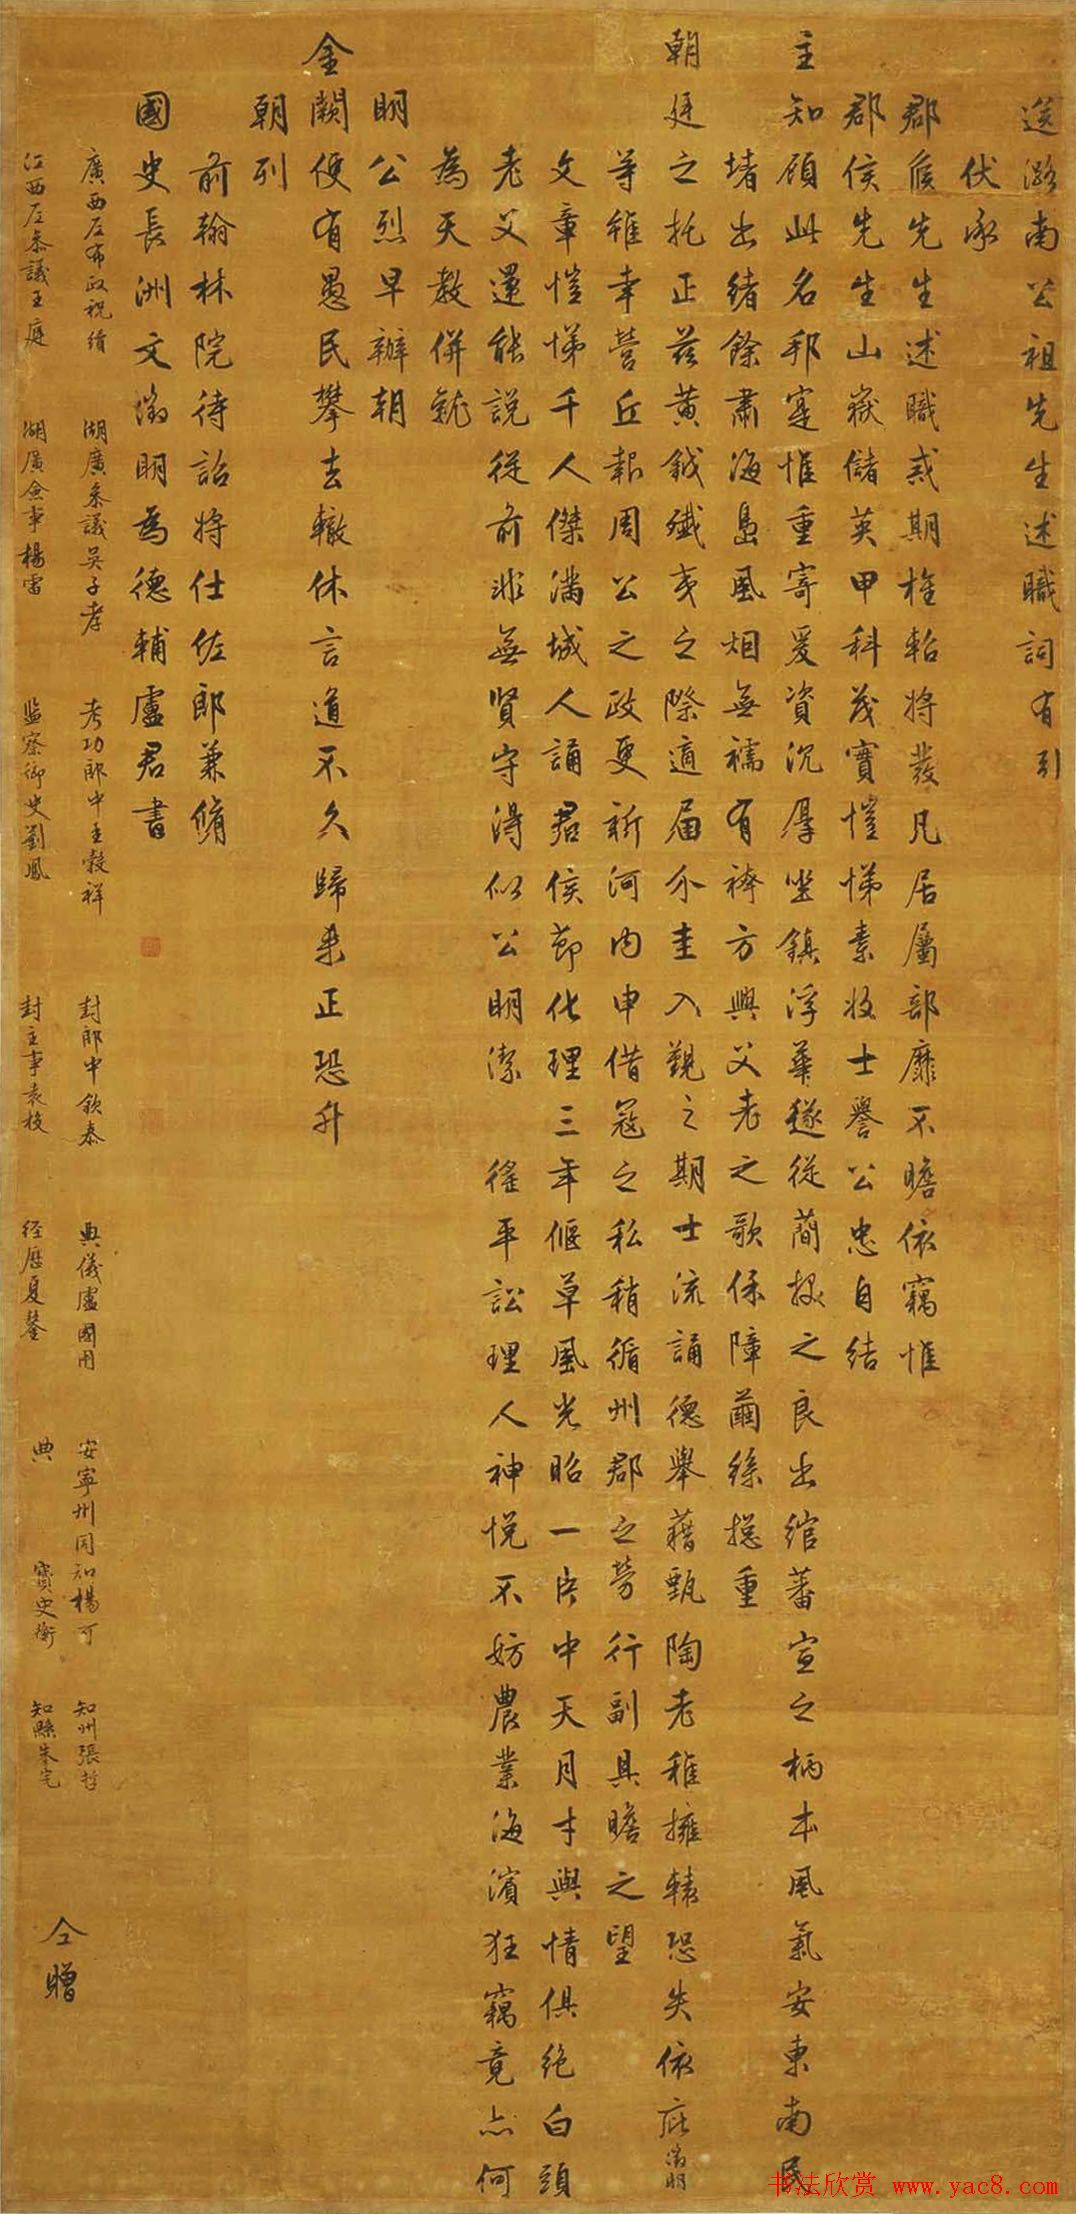 送潞南公祖先生述職詞有引
伏承
郡侯先生述職戒期栓軺將發凡居屬部靡不瞻依竊惟
郡侯先生山嶽儲英甲科茂實愷悌素收士譽公忠自結
主知顧此名邦寔惟重寄爰資沉厚坐鎮浮華遂從蕳拔之良出綰蕃宣之柄本風氣安東南民
堵出緒餘肅海島風烟無襦有袴方興父老之歌保障繭絲揔重
朝廷之托正茲黃鉞殲夷之際適届介圭入覲之期士流誦德舉藉甄陶老稚擁轅恐失依庇徵明
等雖幸營丘報周公之政更祈河內申借寇之私稍循州郡之勞行副具瞻之望
文章愷悌千人傑滿城人誦君侯節化理三年偃草風光昭一片中天月才與情俱絕白頭
老父還能說從前非無賢守得似公明潔 徭平訟理人神悅不妨農業海濱狂竊竟亦何
為天教併就
明公烈早辦朝
金闕便有愚民攀去轍休言道不久歸来正恐升
朝列
前翰林院待詔將仕佐郎兼脩
國史長洲文徵明為德輔盧君書
廣西左布政祝續 湖廣叅議吴子孝 考功郎中王穀祥 封郎中欽泰 典儀盧國用 安寧州同知楊可 知州張哲
江西左叅議王庭 湖廣僉事楊雷 監察御史劉鳳 封主事袁校 经歷夏鏊 典寶史衡 知縣朱宅
仝贈
书法欣赏 www.yac8.com